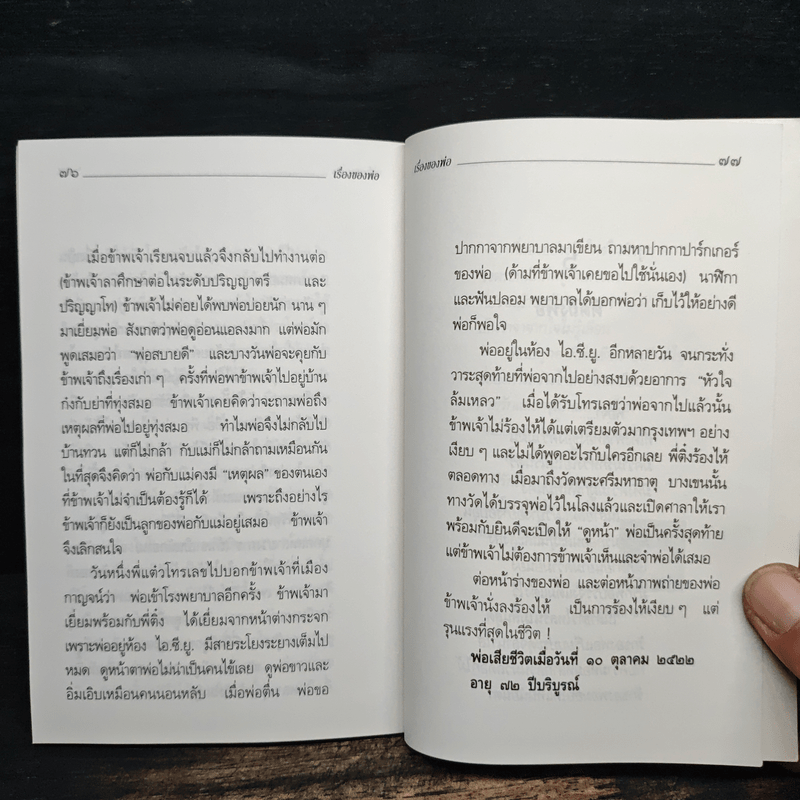 ๗๖ เรื่องของพ่อ
เมื่อข้าพเจ้าเรียนจบแล้วจึงกลับไปทำงานต่อ
(ข้าพเจ้าลาศึกษาต่อในระดับปริญญาตรี และ
ปริญญาโท) ข้าพเจ้าไม่ค่อยได้พบพ่อบ่อยนัก นาน ๆ
มาเยี่ยมพ่อ สังเกตว่าพ่อดูอ่อนแอลงมาก แต่พ่อมัก
พูดเสมอว่า “พ่อสบายดี” และบางวันพ่อจะคุยกับ
ข้าพเจ้าถึงเรื่องเก่า ๆ ครั้งที่พ่อพาข้าพเจ้าไปอยู่บ้าน
ก๋งกับย่าที่ทุ่งสมอ ข้าพเจ้าเคยคิดว่าจะถามพ่อถึง
เหตุผลที่พ่อไปอยู่ทุ่งสมอ ทำไมพ่อจึงไม่กลับไป
บ้านทวน แต่ก็ไม่กล้า กับแม่ก็ไม่กล้าถามเหมือนกัน
ในที่สุดจึงคิดว่า พ่อกับแม่คงมี “เหตุผล” ของตนเอง
ที่ข้าพเจ้าไม่จำเป็นต้องรู้ก็ได้ เพราะถึงอย่างไร
ข้าพเจ้าก็ยังเป็นลูกของพ่อกับแม่อยู่เสมอ ข้าพเจ้า
จึงเลิกสนใจ
วันหนึ่งพี่แต๋วโทรเลขไปบอกข้าพเจ้าที่เมือง
กาญจน์ว่า พ่อเข้าโรงพยาบาลอีกครั้ง ข้าพเจ้ามา
เยี่ยมพร้อมกับพี่ติ๋ง ได้เยี่ยมจากหน้าต่างกระจก
เพราะพ่ออยู่ห้อง ไอ.ซี.ยู. มีสายระโยงระยางเต็มไป
หมด ดูหน้าตาพ่อไม่น่าเป็นคนไข้เลย ดูพ่อขาวและ
อิ่มเอิบเหมือนคนนอนหลับ เมื่อพ่อตื่น พ่อขอ
เรื่องของพ่อ ๗๗
ปากกาจากพยาบาลมาเขียน ถามหาปากกาปาร์กเกอร์
ของพ่อ (ด้ามที่ข้าพเจ้าเคยขอไปใช้นั่นเอง) นาฬิกา
และฟันปลอม พยาบาลได้บอกพ่อว่า เก็บไว้ให้อย่างดี
พ่อก็พอใจ
พ่ออยู่ในห้อง ไอ.ซี.ยู. อีกหลายวัน จนกระทั่ง
วาระสุดท้ายที่พ่อจากไปอย่างสงบด้วยอาการ “หัวใจ
ล้มเหลว” เมื่อได้รับโทรเลขว่าพ่อจากไปแล้วนั้น
ข้าพเจ้าไม่ร้องไห้ได้แต่เตรียมตัวมากรุงเทพฯ อย่าง
เงียบ ๆ และไม่ได้พูดอะไรกับใครอีกเลย พี่ติ๋งร้องไห้
ตลอดทาง เมื่อมาถึงวัดพระศรีมหาธาตุ บางเขนนั้น
ทางวัดได้บรรจุพ่อไว้ในโลงแล้วและเปิดศาลาให้เรา
พร้อมกับยินดีจะเปิดให้ “ดูหน้า” พ่อเป็นครั้งสุดท้าย
แต่ข้าพเจ้าไม่ต้องการข้าพเจ้าเห็นและจำพ่อได้เสมอ
ต่อหน้าร่างของพ่อ และต่อหน้าภาพถ่ายของพ่อ
ข้าพเจ้านั่งลงร้องไห้ เป็นการร้องไห้เงียบ ๆ แต่
รุนแรงที่สุดในชีวิต !
พ่อเสียชีวิตเมื่อวันที่ ๑๐ ตุลาคม ๒๕๒๒
อายุ ๗๒ ปีบริบูรณ์